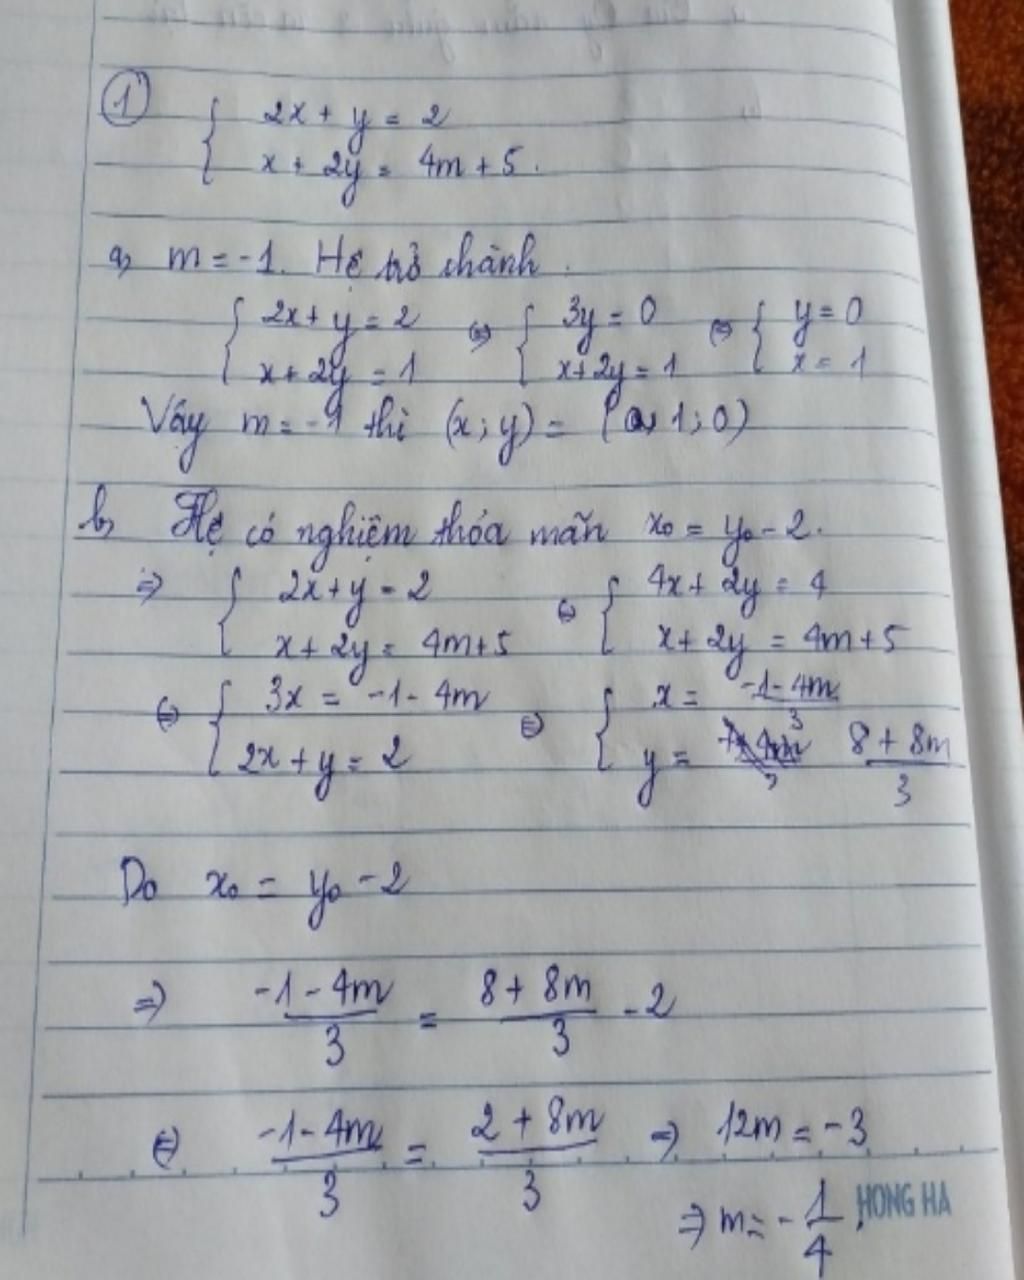 1) { 2x + y = 2
x + 2y = 4m + 5.
a, m = -1. Hệ trở thành.
{ 2x + y = 2 ⇔ { 3y = 0 ⇔ { y = 0
x + 2y = 1 x + 2y = 1 x = 1
Vậy m = -1 thì (x; y) = (1; 0)
b, Hệ có nghiệm thỏa mãn x₀ = y₀ - 2.
⇒ { 2x + y = 2 ⇔ { 4x + 2y = 4
x + 2y = 4m + 5 x + 2y = 4m + 5
⇔ { 3x = -1 - 4m ⇔ { x = (-1 - 4m)/3
2x + y = 2 y = (8 + 8m)/3
Do x₀ = y₀ - 2
⇒ (-1 - 4m)/3 = (8 + 8m)/3 - 2
⇔ (-1 - 4m)/3 = (2 + 8m)/3 ⇒ 12m = -3
⇒ m = -1/4.
HONG HA